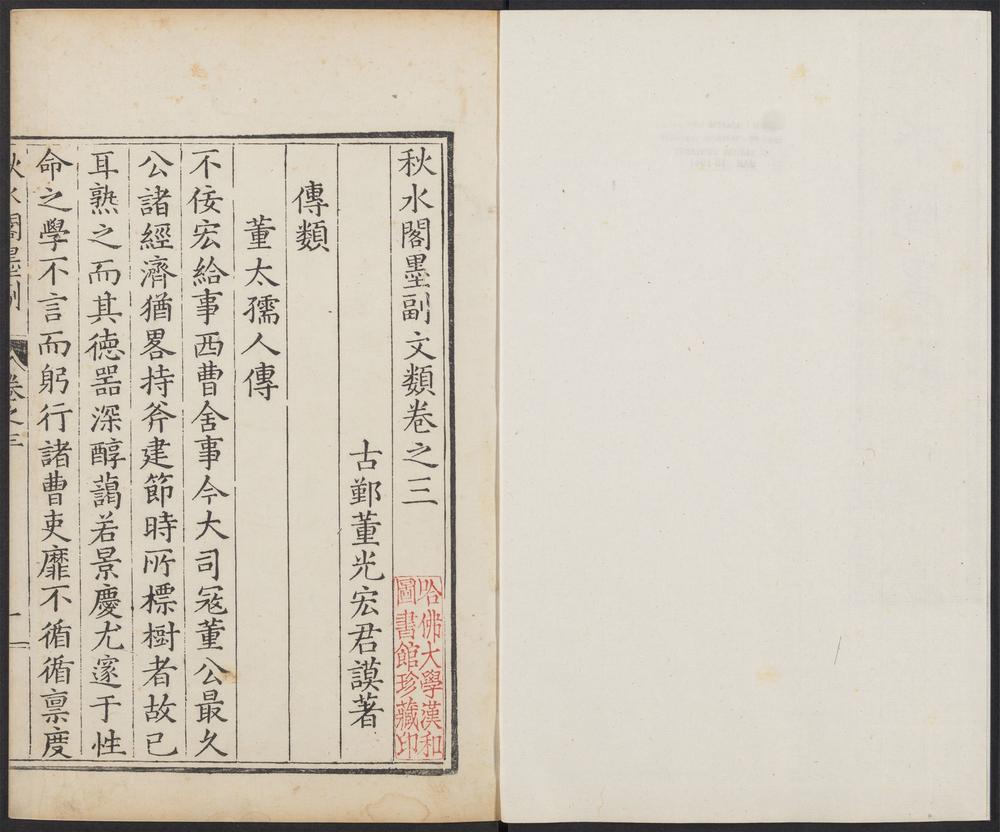 秋水閣墨副文類卷之三
哈佛大學漢和
圖書館珍藏印
古鄞董光宏君謨著
傳類
董太孺人傳
不佞宏給事西曹舍事今大司寇董公最久
公諸經濟猶畧持斧建節時所標樹者故已
耳熟之而其德器深醇藹若景慶尤邃于性
命之學不言而躬行諸曹吏靡不循循禀度
秋水閣墨副
卷之三
一